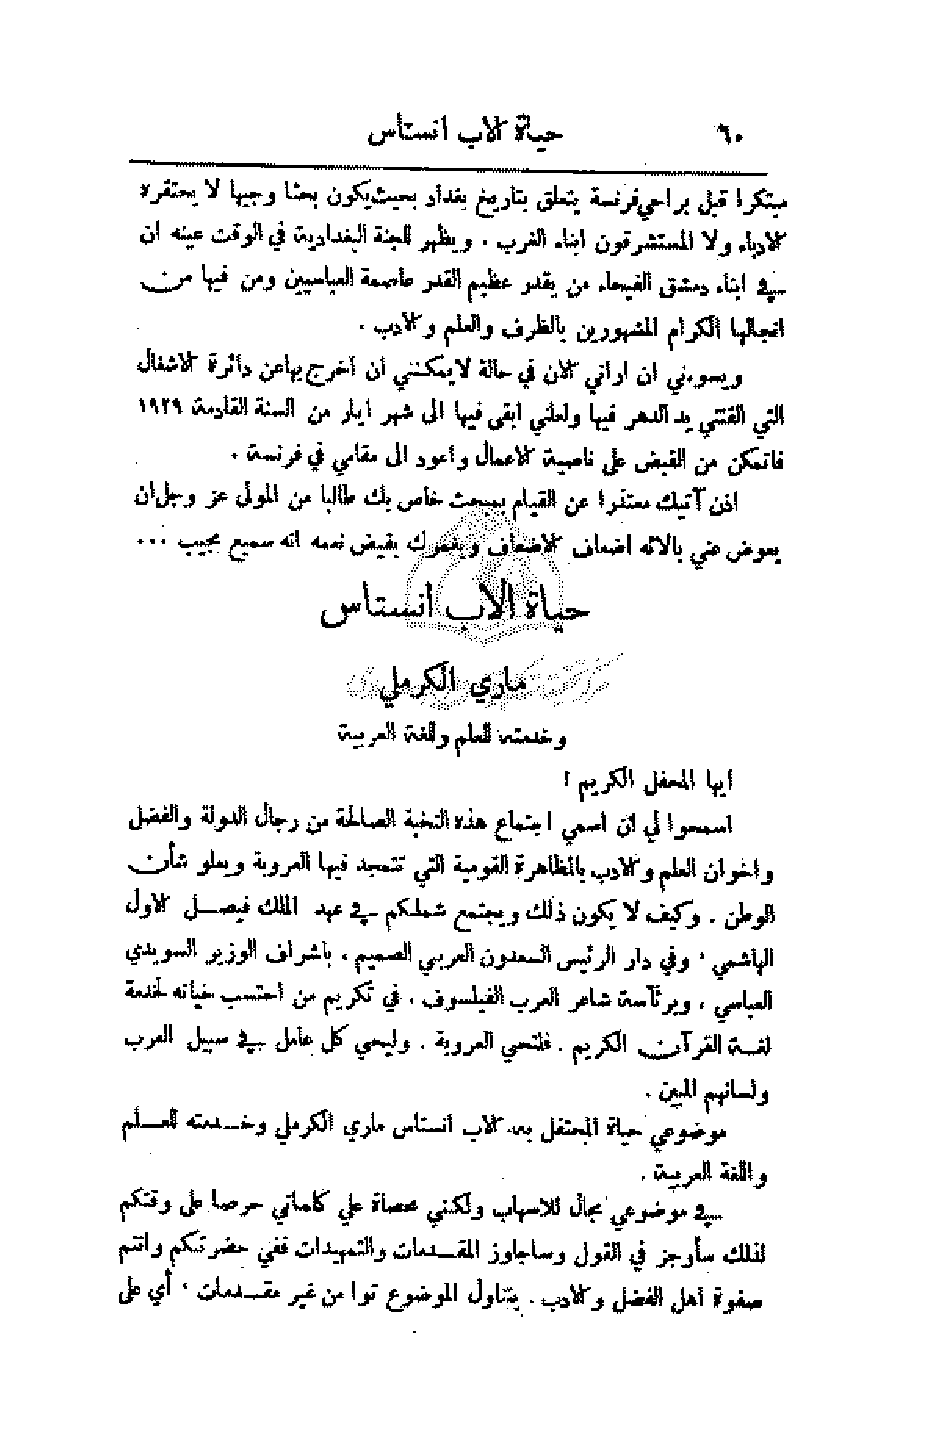 ٦٠
حياة الاب انستاس
مبتكرا قبل براحي فرنسة يتعلق بتاريخ بغداد بحيث يكون بحثا وجيها لا يحتقره
الادباء ولا المستشرقون ابناء الغرب . ويظهر للجنة البغدادية في الوقت عينه ان
في ابناء دمشق الفيحاء من يقدر عظيم القدر عاصمة العباسيين ومن فيها من
انجالها الكرام المشهورين بالظرف والعلم والادب .
ويسوءني ان اراني الان في حالة لا يمكنني ان أخرج بها عن دائرة الاشغال
التي القتني يد الدهر فيها ولعلني ابقى فيها الى شهر ايار من السنة القادمة ١٩٢٩
فاتمكن من القبض على ناصية الاعمال وأعود الى مقامي في فرنسة .
اذن آتيك معتذرا عن القيام ببحث خاص بك طالبا من المولى عز وجل ان
يعوض عني بالائه اضعاف الاضعاف ويغمرك بفيض نعمه انه سميع مجيب ...
حياة الاب انستاس
ماري الكرملي
وخدمته للعلم واللغة العربية
ايها المحفل الكريم !
اسمحوا لي ان اسمي اجتماع هذه النخبة الصالحة من رجال الدولة والفضل
واخوان العلم والادب بالمظاهرة القومية التي تتمجد فيها العروبة ويعلو شأن
الوطن . وكيف لا يكون ذلك ويجتمع شملكم في عهد الملك فيصل الاول
الهاشمي ، وفي دار الرئيس السعدون العربي الصميم . باشراف الوزير السويدي
العباسي ، وبرئاسة شاعر العرب الفيلسوف . في تكريم من احتسب حياته لخدمة
لغة القرآن الكريم . فلتحي العروبة . وليحي كل عامل في سبيل العرب
ولسانهم المبين .
موضوعي حياة المحتفل به الاب انستاس ماري الكرملي وخدمته للعلم
واللغة العربية .
في موضوعي مجال للاسهاب ولكني محصاة علي كلماتي حرصا على وقتكم
لذلك سأوجز في القول وساجاوز المقدمات والتمهيدات ففي حضرتكم وانتم
صفوة أهل الفضل والادب . يتناول الموضوع توا من غير مقدمات ، أي على